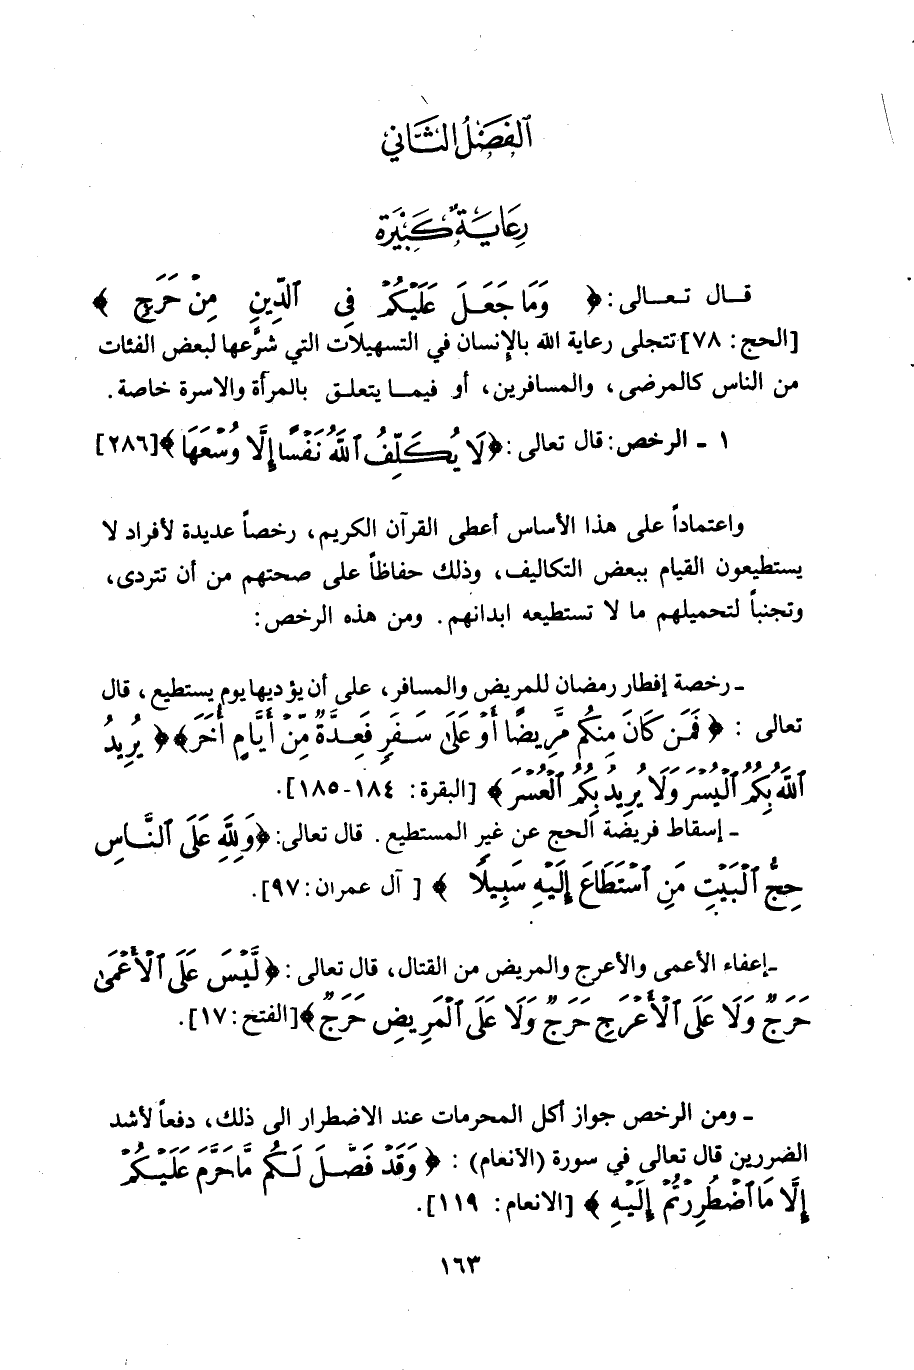 الفَصْلُ الثَّانِي
رِعَايَةٌ كَبِيْرَة
قـال تـعـالى: ﴿ وَمَا جَعَلَ عَلَيْكُمْ فِي ٱلدِّينِ مِنْ حَرَجٍ ﴾
[الحج: ٧٨] تتجلى رعاية الله بالإنسان في التسهيلات التي شرَّعها لبعض الفئات
من الناس كالمرضى، والمسافرين، أو فيمـا يتعلـق بالمرأة والاسرة خاصة.
١ - الرخص: قال تعالى: ﴿لَا يُكَلِّفُ ٱللَّهُ نَفْسًا إِلَّا وُسْعَهَا﴾[٢٨٦]
واعتماداً على هذا الأساس أعطى القرآن الكريم، رخصاً عديدة لأفراد لا
يستطيعون القيام ببعض التكاليف، وذلك حفاظاً على صحتهم من أن تتردى،
وتجنباً لتحميلهم ما لا تستطيعه ابدانهم. ومن هذه الرخص:
ـ رخصة إفطار رمضان للمريض والمسافر، على أن يؤديها يوم يستطيع، قال
تعالى : ﴿ فَمَن كَانَ مِنكُم مَّرِيضًا أَوْ عَلَىٰ سَفَرٍ فَعِدَّةٌ مِّنْ أَيَّامٍ أُخَرَ﴾﴿ يُرِيدُ
ٱللَّهُ بِكُمُ ٱلْيُسْرَ وَلَا يُرِيدُ بِكُمُ ٱلْعُسْرَ ﴾ [البقرة: ١٨٤-١٨٥].
ـ إسقاط فريضة الحج عن غير المستطيع. قال تعالى: ﴿وَلِلَّهِ عَلَى ٱلنَّاسِ
حِجُّ ٱلْبَيْتِ مَنِ ٱسْتَطَاعَ إِلَيْهِ سَبِيلًا ﴾ [ آل عمران: ٩٧].
ـإعفاء الأعمى والأعرج والمريض من القتال، قال تعالى: ﴿لَّيْسَ عَلَى ٱلْأَعْمَىٰ
حَرَجٌ وَلَا عَلَى ٱلْأَعْرَجِ حَرَجٌ وَلَا عَلَى ٱلْمَرِيضِ حَرَجٌ﴾[الفتح: ١٧].
ـ ومن الرخص جواز أكل المحرمات عند الاضطرار الى ذلك، دفعاً لأشد
الضررين قال تعالى في سورة (الأنعام) : ﴿ وَقَدْ فَصَّلَ لَكُم مَّا حَرَّمَ عَلَيْكُمْ
إِلَّا مَا ٱضْطُرِرْتُمْ إِلَيْهِ ﴾ [الانعام: ١١٩].
١٦٣